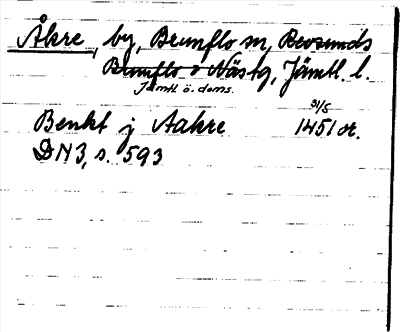 Åkre, by, Brunflo sn, Revsunds
Brunflo o Näs tg, Jämtl. l.
Jämtl ö. doms.
Benkt j Aakre 31/5 1451 or.
DN 3, s. 593